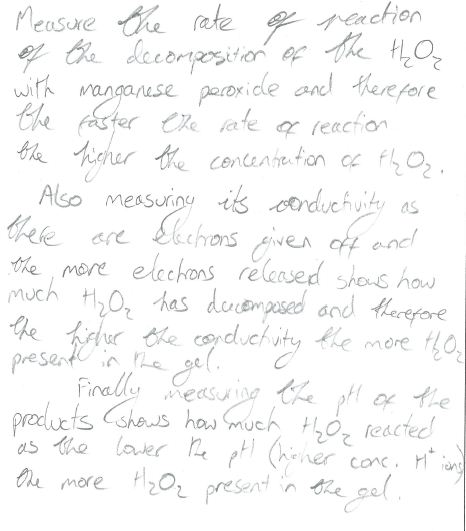 Measure the rate of reaction
of the decomposition of the H₂O₂
with manganese peroxide and therefore
the faster the rate of reaction
the higher the concentration of H₂O₂.
Also measuring its conductivity as
there are electrons given off and
the more electrons released shows how
much H₂O₂ has decomposed and therefore
the higher the conductivity the more H₂O₂
present in the gel.
Finally measuring the pH of the
products shows how much H₂O₂ reacted
as the lower the pH (higher conc. H⁺ ions)
the more H₂O₂ present in the gel.